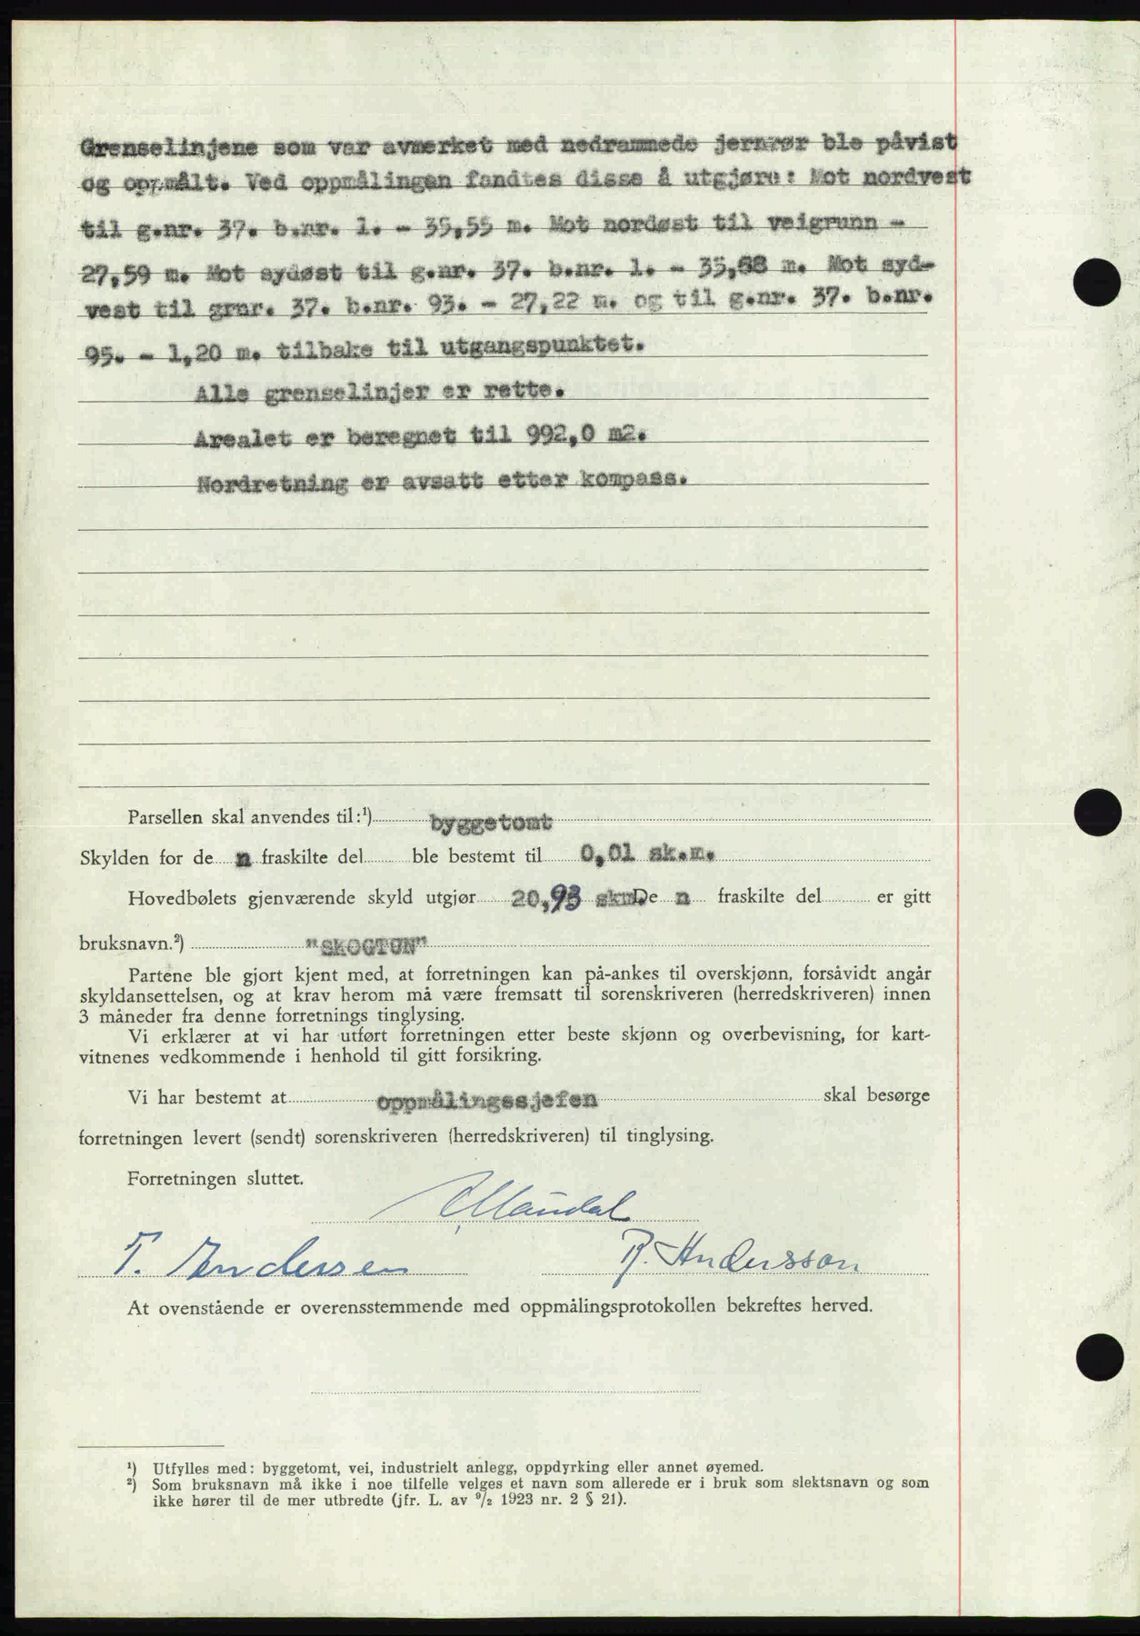 Grenselinjene som var avmerket med nedrammede jernrør ble påvist
og oppmålt. Ved oppmålingen fandtes disse å utgjøre: Mot nordvest
til g.nr. 37. b.nr. 1. - 35,55 m. Mot nordøst til veigrunn -
27,59 m. Mot sydøst til g.nr. 37. b.nr. 1. - 35,68 m. Mot syd-
vest til grnr. 37. b.nr. 93. - 27,22 m. og til g.nr. 37. b.nr.
95. - 1,20 m. tilbake til utgangspunktet.
Alle grenselinjer er rette.
Arealet er beregnet til 992,0 m2.
Nordretning er avsatt etter kompass.
Parsellen skal anvendes til:¹) byggetomt
Skylden for de n fraskilte del ble bestemt til 0,01 sk.m.
Hovedbølets gjenværende skyld utgjør 20,93 skm De n fraskilte del er gitt
bruksnavn.²) "SKOGTUN"
Partene ble gjort kjent med, at forretningen kan på-ankes til overskjønn, forsåvidt angår
skyldansettelsen, og at krav herom må være fremsatt til sorenskriveren (herredskriveren) innen
3 måneder fra denne forretnings tinglysing.
Vi erklærer at vi har utført forretningen etter beste skjønn og overbevisning, for kart-
vitnenes vedkommende i henhold til gitt forsikring.
Vi har bestemt at oppmålingssjefen skal besørge
forretningen levert (sendt) sorenskriveren (herredskriveren) til tinglysing.
Forretningen sluttet.
Mandal
T. Andersen R. Andersson
At ovenstående er overensstemmende med oppmålingsprotokollen bekreftes herved.
¹) Utfylles med: byggetomt, vei, industrielt anlegg, oppdyrking eller annet øyemed.
²) Som bruksnavn må ikke i noe tilfelle velges et navn som allerede er i bruk som slektsnavn og som
ikke hører til de mer utbredte (jfr. L. av ⁹/₂ 1923 nr. 2 § 21).